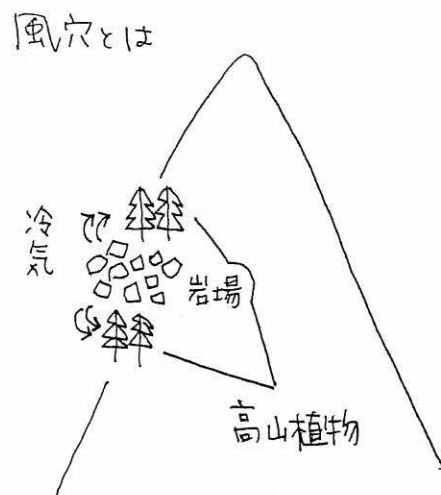 風穴とは
冷気
岩場
高山植物